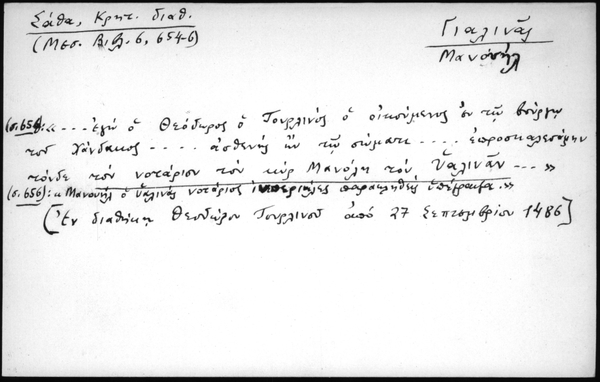 Σάθα, Κρητ. διαθ.
(Μεσ. Βιβλ. 6, 654-6)
Γιαλινᾶς
Μανόλης
(σ.654): «... ἐγὼ ὁ Θεόδωρος ὁ Τουρλινός ὁ οἰκούμενος ἐν τῷ βούργῳ
τοῦ Χάνδακος .... ἀσθενής ὢν τῷ σώματι .... ἐπροσκαλεσάμην
τόνδε τὸν νοτάριον τὸν κὺρ Μανόλη τὸν Ὑαλινᾶν ... »
(σ.656): « Μανουὴλ ὁ ὑαλινᾶς νοτάριος παρακληθεὶς ὑπέγραψα.»
[Ἐν διαθήκῃ Θεοδώρου Τουρλινοῦ ἀπό 27 Σεπτεμβρίου 1486]